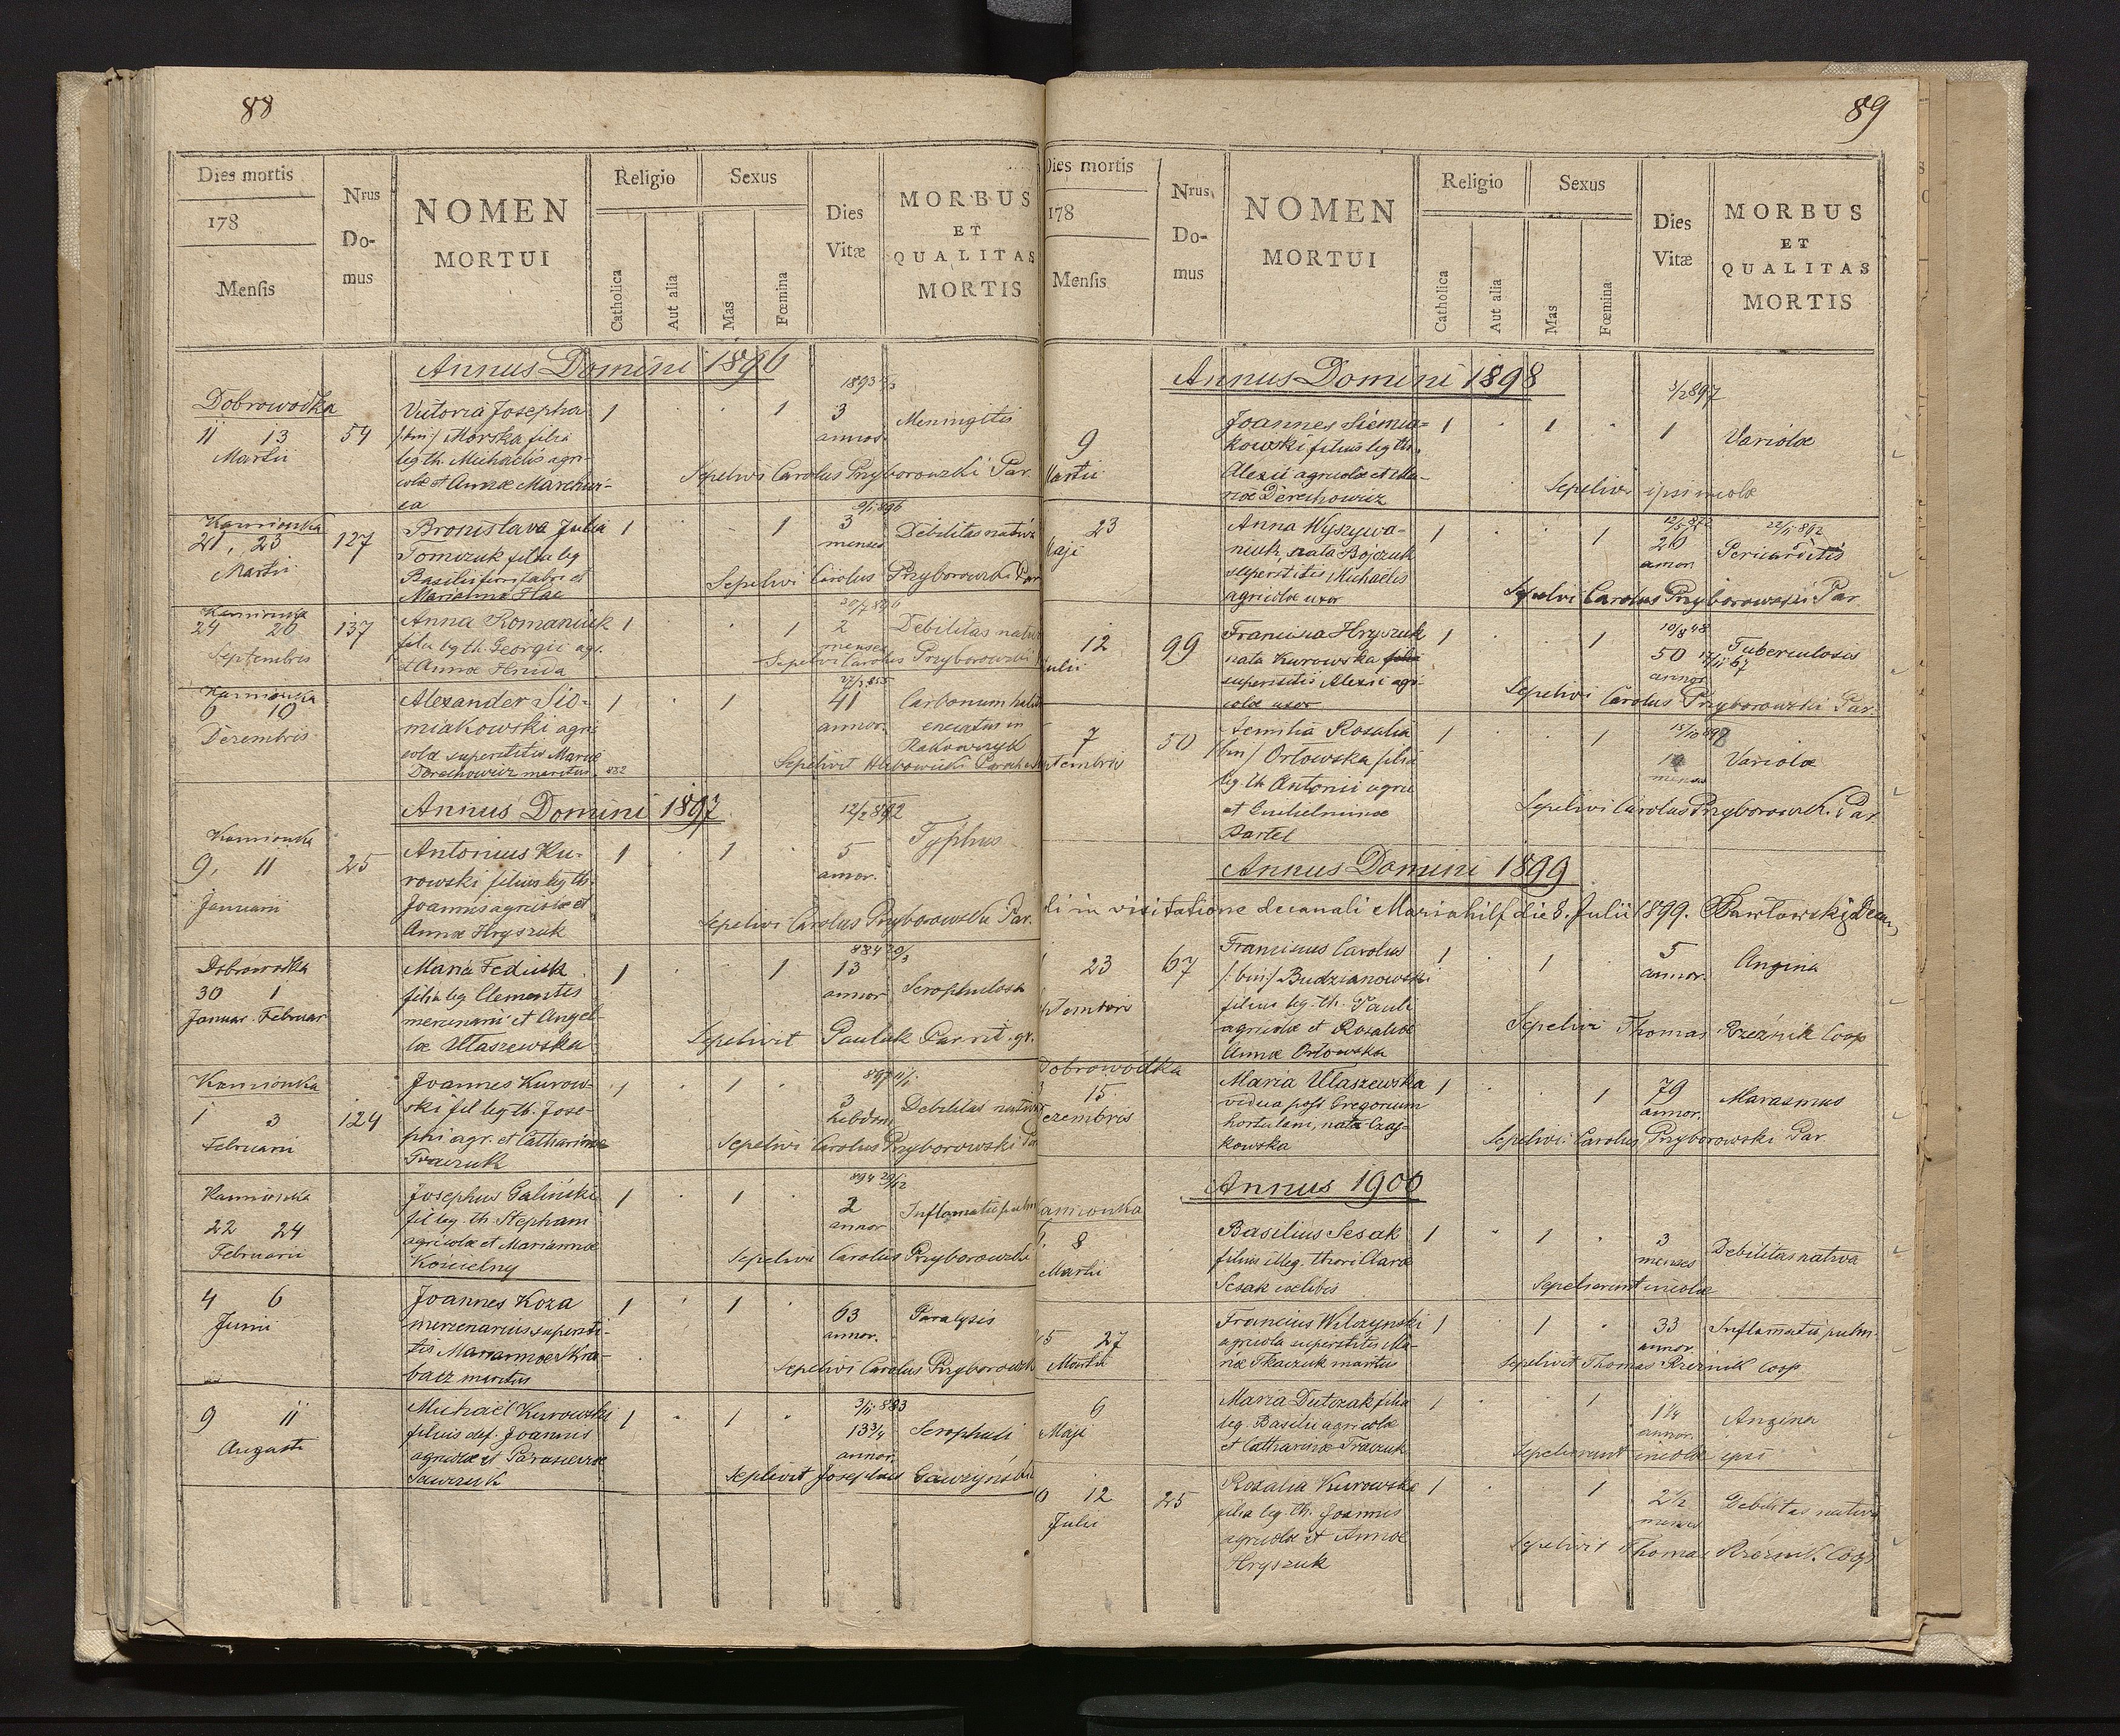 88
Dies mortis
178
Mensis
Nrus
Do-
mus
NOMEN
MORTUI
Religio
Catholica
Aut alia
Sexus
Mas
Fœmina
Dies
Vitæ
MORBUS
ET
QUALITAS
MORTIS
Annus Domini 1896
Dobrowodka
11 13
Martii
54
Victoria Josepha
/:bin:/ Morska filia
leg. th. Michaelis agri-
colæ et Annæ Marchwi-
ca
1 . . 1
3
annor.
Meningitis
Sepelivi Carolus Przyborowski Par.
Kamionka
21, 23
Martii
127
Bronislava Julia
Tomczuk filia leg
Basilii ferrifabri et
Mariannæ Hac
1 . . 1
3
menses
Debilitas nativa
Sepelivi Carolus Przyborowski Par
Kamionka
24 26
Septembris
137
Anna Romaniuk
filia leg th. Georgii agr.
et Annæ Hnida
1 . . 1
2
menses
Debilitas nativa
Sepelivi Carolus Przyborowski
Kamionka
6 10
Dezembris
Alexander Sie-
miakowski agri
colæ superstitis Mariæ
Derechowicz maritus
1 . 1
27/2 855
41
annor.
Carbonum
enectus in
Rakowczyk
Sepelivit Hlibowicki Paroch
Annus Domini 1897
12/2 892
Kamionka
9, 11
Januarii
25
Antonius Ku-
rowski filius leg th.
Joannis agricolæ et
Annæ Hryszuk
1 . 1 .
5
annor.
Typhus
Sepelivi Carolus Przyborowski Par.
Dobrowodka
30 1
Januar. Februar
Maria Fediuk
filia leg Clementis
mercenarii et Angel-
læ Utaszewska
1 . . 1
13
annor
Scrophulosa
Sepelivit Pauluk Par rit. gr.
Kamionka
1 3
Februarii
124
Joannes Kurow-
ski fil leg th. Jose-
phi agr. et Catharinæ
Tkaczuk
1 . 1 .
3
hebdom
Debilitas nativa
Sepelivi Carolus Przyborowski Par
Kamionka
22 24
Februarii
Josephus Galiński
fil leg. th. Stephani
agricolæ et Mariannæ
Kościelny
1 . 1 .
894 29/12
2
annor
Inflamatio pulm
Sepelivi Carolus Przyborowski
4 6
Junii
Joannes Koza
mercenarius supersti-
tis Mariannæ Skra-
bacz maritus
1 . 1 .
63
annor.
Paralysis
Sepelivi Carolus Przyborowski
9 11
Augusti
Michaël Kurowski
filius def. Joannis
agricolæ et Parascevæ
Sawczuk
1 . 1 .
3/11 883
13 3/4
annor.
Scrophuli
Seplivit Josephus Gawzyński
89
Dies mortis
178
Mensis
Nrus.
Do-
mus
NOMEN
MORTUI
Religio
Catholica
Aut alia
Sexus
Mas
Fœmina
Dies
Vitæ
MORBUS
ET
QUALITAS
MORTIS
Annus Domini 1898
3/2 897
9
Martii
Joannes Siemia-
kowski filius leg th.
Alexii agricolæ et Ma-
riæ Derechowicz
1 . 1 .
1
Variolæ
Sepeliv. ipsi incolæ
23
Maji
Anna Wyszywa-
niuk, nata Bojczuk
superstitis Michaelis
agricolæ uxor
1 . . 1
26
annor
22/11 892
Pericarditis
Sepelivi Carolus Przyborowski Par
12
Julii
99
Francisca Hryszuk
nata Kurowska filia
superstitis Alexii agri
colæ uxor
1 . . 1
10/8 48
50
annor
Tuberculosis
Sepelivi Carolus Przyborowski Par.
7
ptembris
50
Aemilia Rosalia
/bin/ Orłowska filia
leg. th Antonii agric
et Guilelminæ
Bartel
1 . . 1
15/10 897
menses
Variolæ
Sepelivi Carolus Przyborowski Par.
Annus Domini 1899
di in visitatione decanali Mariahilf die 8. Julii 1899. Pawłowski Decan
23
ptembris
67
Franciscus Carolus
/:bin:/ Budzianowski
filius leg. th. Pauli
agricolæ et Rosaliæ
Annæ Orłowska
1 . 1 .
5
annor.
Angina
Sepelivi Thomas Rzeźnik Coop
Dobrowodka
15
ezembris
Maria Utaszewska
vidua post Gregorium
hortulani, nata Czaj-
kowska
1 . . 1
79
annor.
Marasmus
Sepelivi Carolus Przyborowski Par
Annus 1900
amionka
8
Martii
Basilius Sesak
filius illeg. thori Claræ
Sesak cælibis
1 . 1 .
3
menses
Debilitas nativa
Sepelierunt incolæ
5 27
Martii
Franciscus Wilczynski
agricola superstitis Ma-
riæ Tkaczuk maritus
1 . 1 .
33
annor.
Inflamatio pulm.
Sepelivit Thomas Rzeźnik Coop
6
Maji
Maria Dutczak filia
leg. Basilii agricolæ
et Catharinæ Tkaczuk
1 . . 1
1 1/4
annor.
Angina
Sepelierunt incolæ ipsi
12
Julii
25
Rozalia Kurowska
filia leg. th. Joannis
agricolæ et Annæ
Hryszuk
1 . . 1
2 1/2
menses
Debilitas nativa
Sepelivit Thomas Rzeźnik Coop